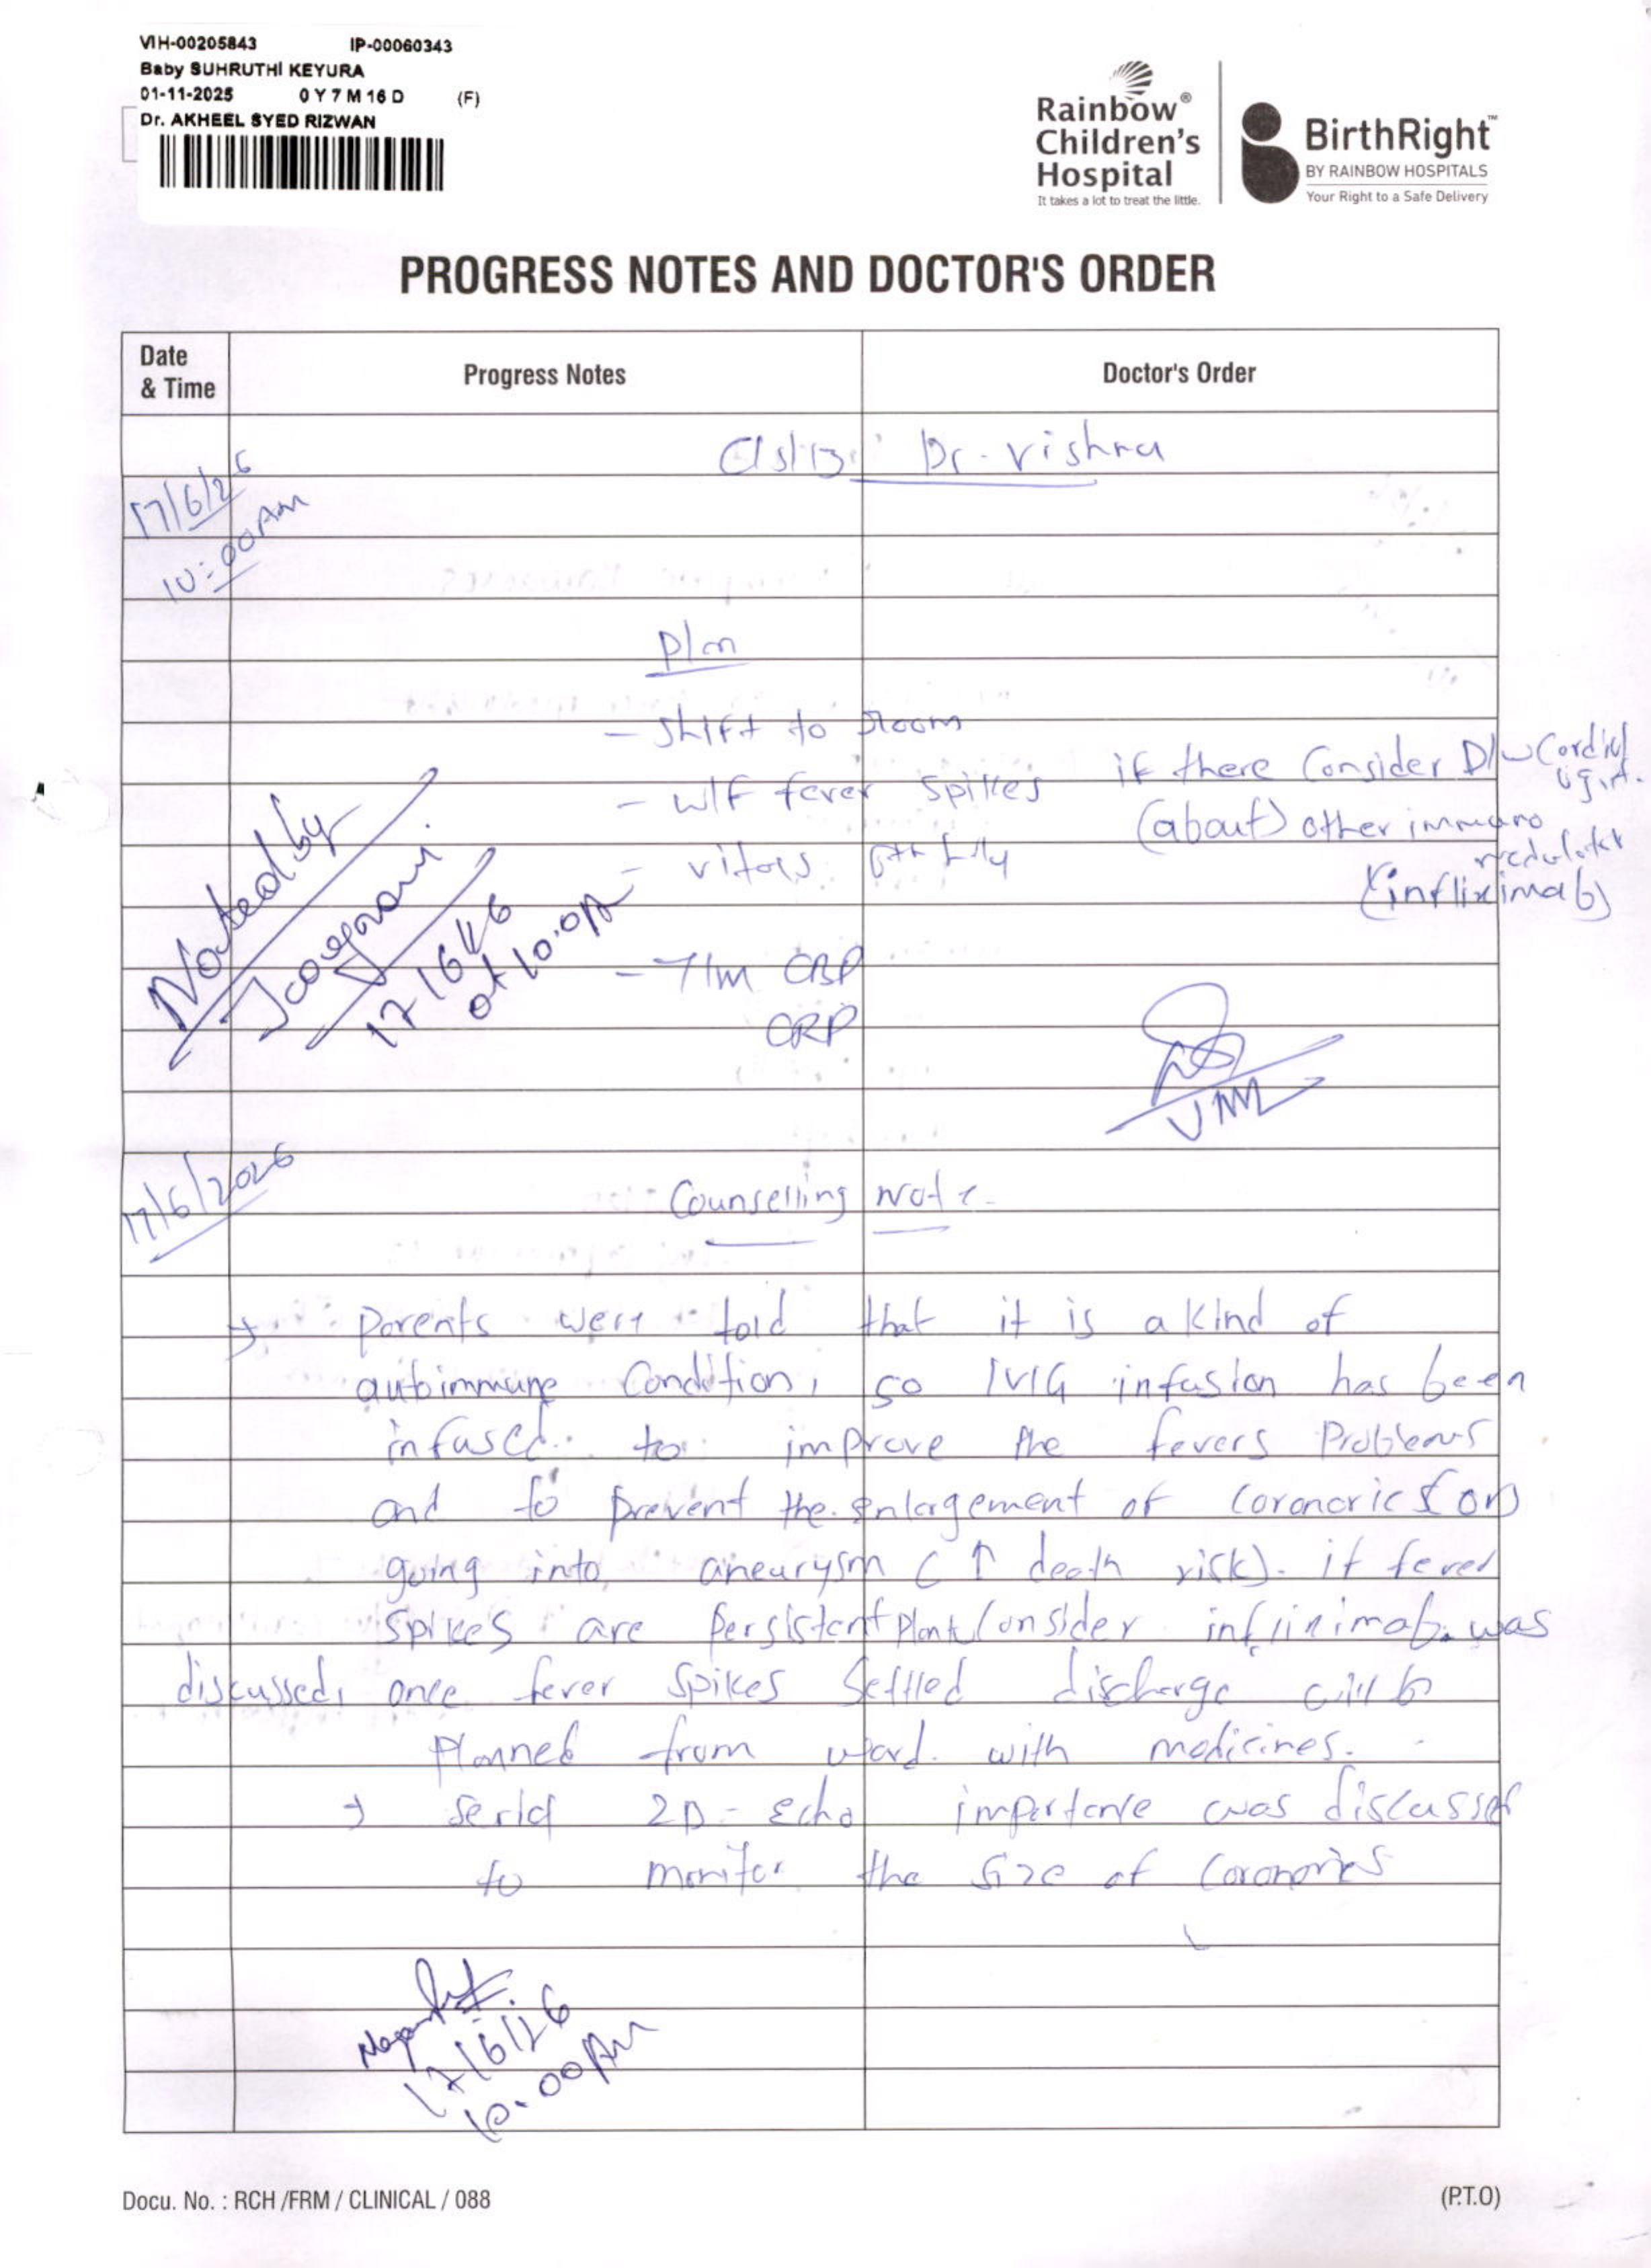 VIH-00205843 IP-00060343
Baby SUHRUTHI KEYURA
01-11-2025 0 Y 7 M 16 D (F)
Dr. AKHEEL SYED RIZWAN
Rainbow®
Children's
Hospital
It takes a lot to treat the little.
BirthRight™
BY RAINBOW HOSPITALS
Your Right to a Safe Delivery
PROGRESS NOTES AND DOCTOR'S ORDER
Date
& Time
Progress Notes
Doctor's Order
Dr. Vishnu
17/6/26
10:00AM
Plan
- Shift to room
- W/F fever spikes if there Consider D/W Cardiologist.
(about) other immuno
modulator
(infliximab)
- vitals
- T/m CBP
CRP
Noted by
17/6/26
at 10:0
17/6/2026
Counselling Note
→ Parents were told that it is a kind of
autoimmune Condition, so IVIG infusion has been
infused to improve the fevers Problems
and to prevent the enlargement of coronaries (or)
going into aneurysm (↑ death risk). if fever
spikes are Persistent plan to Consider was
discussed, once fever spikes settled discharge will be
Planned from ward with medicines.
→ Serial 2D-Echo importance was discussed
to monitor the size of Coronaries
17/6/26
10:00AM
Docu. No. : RCH /FRM / CLINICAL / 088
(P.T.O)